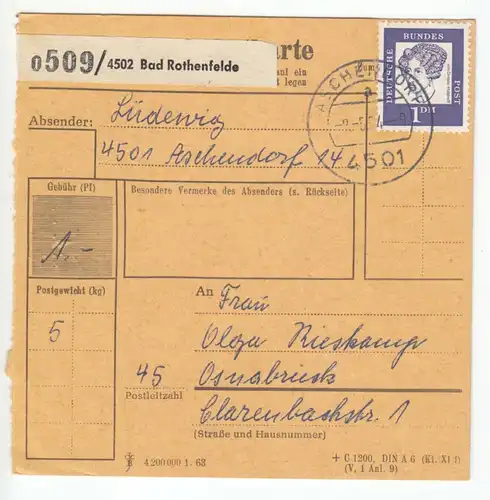 o509/4502 Bad Rothenfelde
arte
auf ein
t legen
DEUTSCHE BUNDES POST
1 DM
ASCHENDORF
a
4501
Absender:
Lüdewig
4501 Aschendorf 14
Gebühr (Pf)
1.-
Besondere Vermerke des Absenders (s. Rückseite)
Postgewicht (kg)
5
An
Frau
Olga Rieskamp
45 Osnabrück
Postleitzahl
Clarenbachstr. 1
(Straße und Hausnummer)
4 200 000 1. 63
+ C 1200, DIN A 6 (Kl. XI f)
(V, 1 Anl. 9)